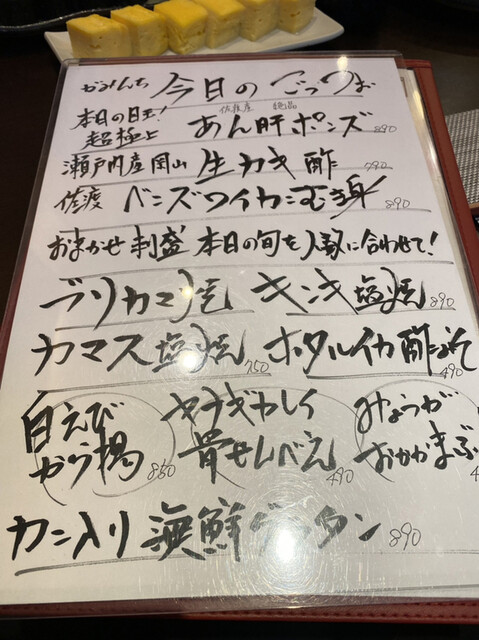 がみんち 今日のごっつお
本日の目玉! 佐渡産 絶品
超極上 あん肝ポンズ 890
瀬戸内産岡山 生カキ酢 790
佐渡 ベニズワイカニむき身 890
おまかせ刺盛 本日の旬を人数に合わせて!
ブリカマ焼 キンキ塩焼 890
カマス塩焼 750 ホタルイカ酢みそ 490
白えび から揚 850 ヤナギカレイ 骨せんべえ 490 みょうが おかかまぶ
カニ入り海鮮グラタン 890